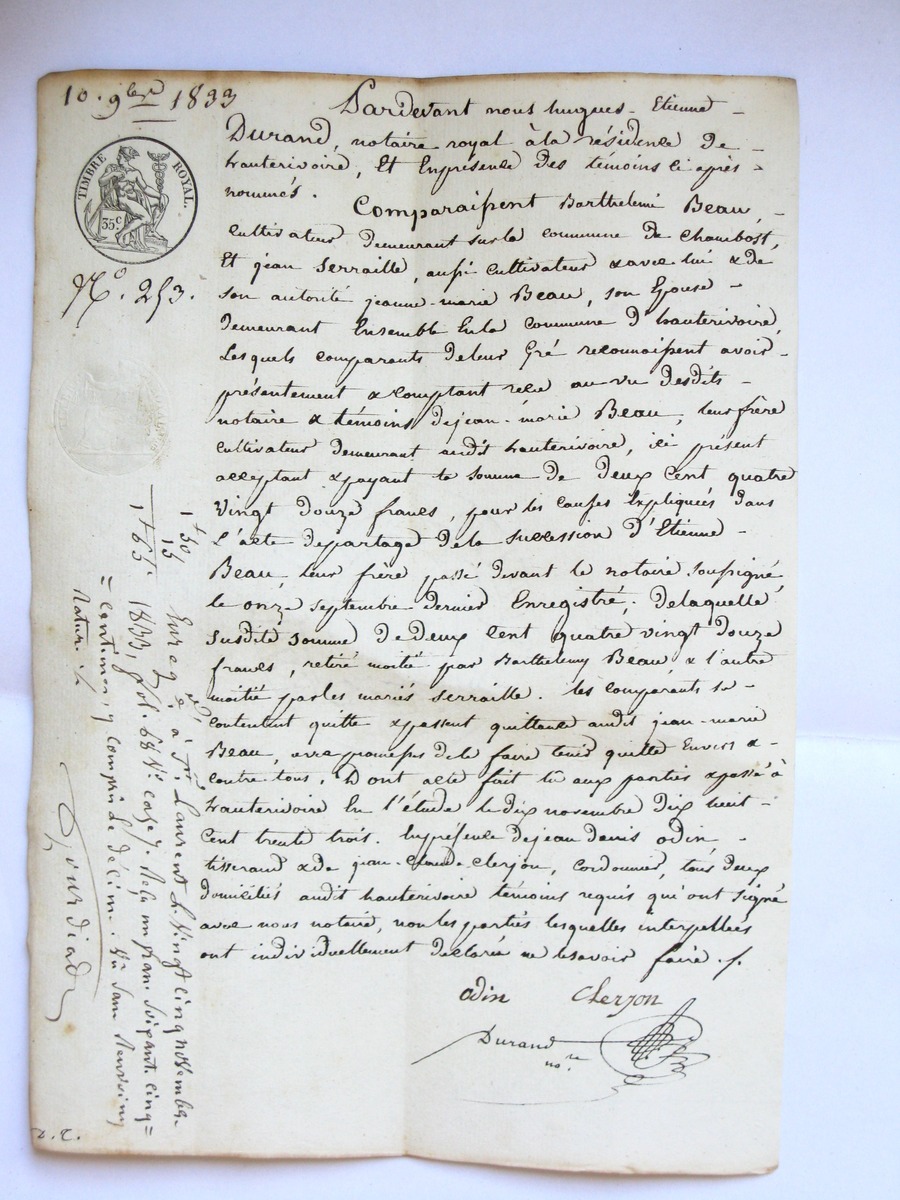 10. 9bre 1833
TIMBRE ROYAL.
35c
No. 253.
Pardevant nous hugues - Etienne -
Durand, notaire royal à la résidence de -
hauterivoire, Et Enprésence des témoins ci après -
nommés.
Comparaissent Barthelemi Beau, -
cultivateur demeurant sur la commune de Chambost,
Et jean Serraille, aussi cultivateur & avec lui & de
son autorité jeanne-marie Beau, son Epouse -
demeurant Ensemble En la commune d'hauterivoire,
Lesquels comparants de leur Gré reconnaissent avoir -
présentement & comptant reçu au vu desdits -
notaire & témoins de jean-marie Beau, leur frère
cultivateur demeurant audit hauterivoire, ici présent
acceptant & payant la somme de deux cent quatre
vingt douze francs, pour les causes Expliquées dans
L'acte departage dela succession d'Etienne -
Beau, leur frère passé devant le notaire soussigné
le onze septembre dernier Enregistré; delaquelle
susdite somme de deux cent quatre vingt douze
francs, retiré moitié par Barthelemy Beau & l'autre
moitié par les mariés serraille. les comparants se -
contentent quitte & passent quittance audit jean-marie
Beau, avec promesse de le faire tenir quitte Envers &
contre tous. Dont acte fait lu aux parties & passé à
hauterivoire En l'étude le dix novembre dix huit -
cent trente trois. Enprésence de jean denis odin -
tisserand & de jean-claude clerjon, cordonnier, tous deux
domiciliés audit hauterivoire témoins requis qui ont signé
avec nous notaire, non les parties lesquelles interpellées
ont individuellement déclaré ne le savoir faire ./.
odin Clerjon
Durand
nore
1f 50c
15
1f 65c
Enregé à St. Laurent L. Vingt cinq novembre
1833, fol. 68 Vo. case 7. Reçu un fran. soixant. cinq =
= centimes, y compris le décim.
Gourdiad
D. C.